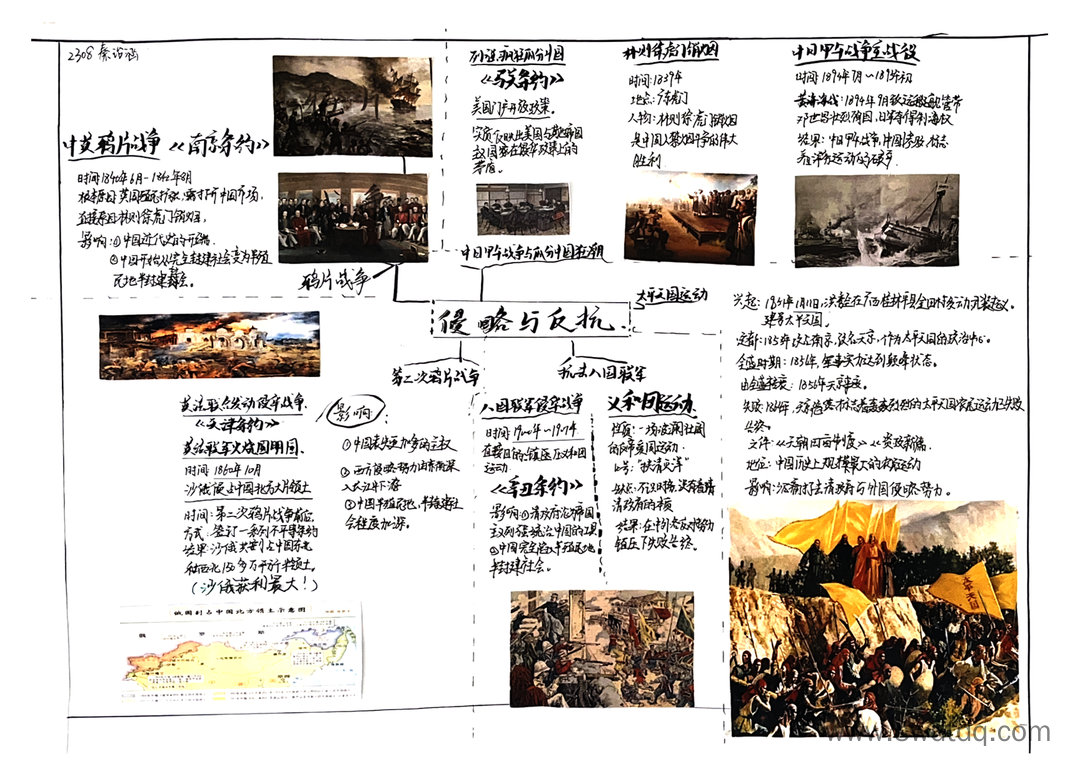 2308 秦语涵
中英鸦片战争 《南京条约》
时间:1840年6月-1842年8月
直接原因:林则徐虎门销烟,
影响:①中国近代史的开端.
②中国开始从完全封建社会变为半殖
民地半封建社会.
鸦片战争
列强疯狂瓜分中国
《马关条约》
美国门户开放政策.
实质:反映出美国与
矛盾.
中日甲午战争与瓜分中国狂潮
林则徐虎门销烟
时间:1839年
地点:广东虎门
人物:林则徐虎门销烟
是中国人禁烟斗争的伟大
胜利
中日甲午战争主战役
时间:1894年7月~1895年初
黄海海战:1894年9月致远舰舰管带
邓世昌壮烈殉国,日军夺得制海权
结果:中日甲午战争,中国惨败,标志
着洋务运动的破产.
侵略与反抗.
太平天国运动
兴起:1851年1月11日,洪秀全在广西桂林平县金田村发动武装起义.
建号太平天国.
定都:1853年攻占南京,改名天京,作为太平天国的政治中心.
全盛时期:1856年,军事实力达到巅峰状态.
由盛转衰:1856年天京事变.
失败:1864年,天京陷落标志着轰轰烈烈的太平天国农民运动已失败
告终.
文件:《天朝田亩制度》《资政新篇》
地位:中国历史上规模最大的农民运动
影响:沉痛打击清政府与外国侵略势力.
第二次鸦片战争
抗击八国联军
英法联合发动侵华战争.
《天津条约》
英法联军火烧圆明园.
时间:1860年10月
沙俄侵占中国北方大片领土
时间:第二次鸦片战争前后
方式:签订一系列不平等条约
结果:沙俄共割占中国东北
和西北150多万平方千米领土.
(沙俄获利最大!)
影响:
①中国丧失更加多的主权
②西方侵略势力由东南深
入长江中下游
③中国半殖民地,半封建社
会程度加深.
八国联军侵华战争
时间:1900年~1901年
在镇压义和团
运动.
《辛丑条约》
影响:①清政府沦为帝国
主义列强统治中国的工具
②中国完全陷入半殖民地
半封建社会.
义和团运动.
性质:一场波澜壮阔
的反帝爱国运动.
口号:"扶清灭洋"
缺点:不认时务,没有看清
清政府的
结果:在中外老反动势力
镇压下失败告终.
俄国割占中国北方领土示意图
太平天国
www.swdtdq.com